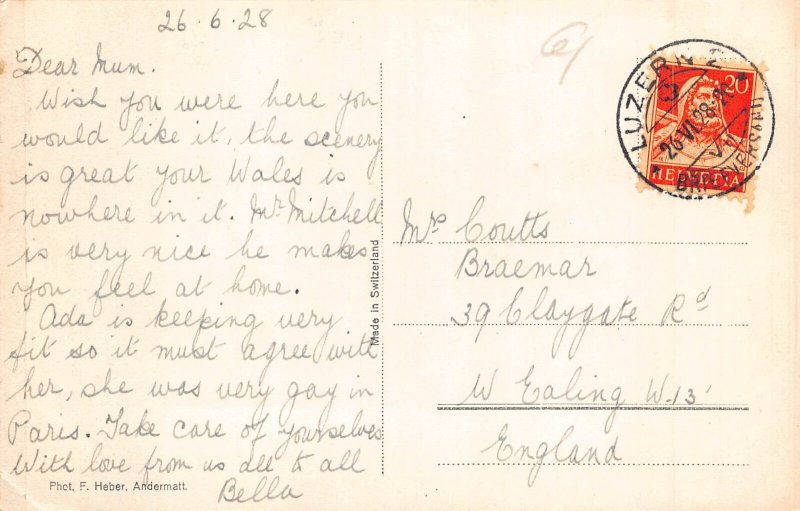 26·6·28
Dear Mum.
Wish you were here you
would like it, the scenery
is great your Wales is
nowhere in it. Mr Mitchell
is very nice he makes
you feel at home.
Ada is keeping very
fit so it must agree with
her, she was very gay in
Paris. Take care of yourselves
With love from us all to all
Bella
Phot. F. Heber, Andermatt.
Made in Switzerland
LUZERN 2
26.VI.28-20
BRIEFVERSAND
20
HELVETIA
Mrs Coutts
Braemar
39 Claygate Rd
W Ealing W.13
England